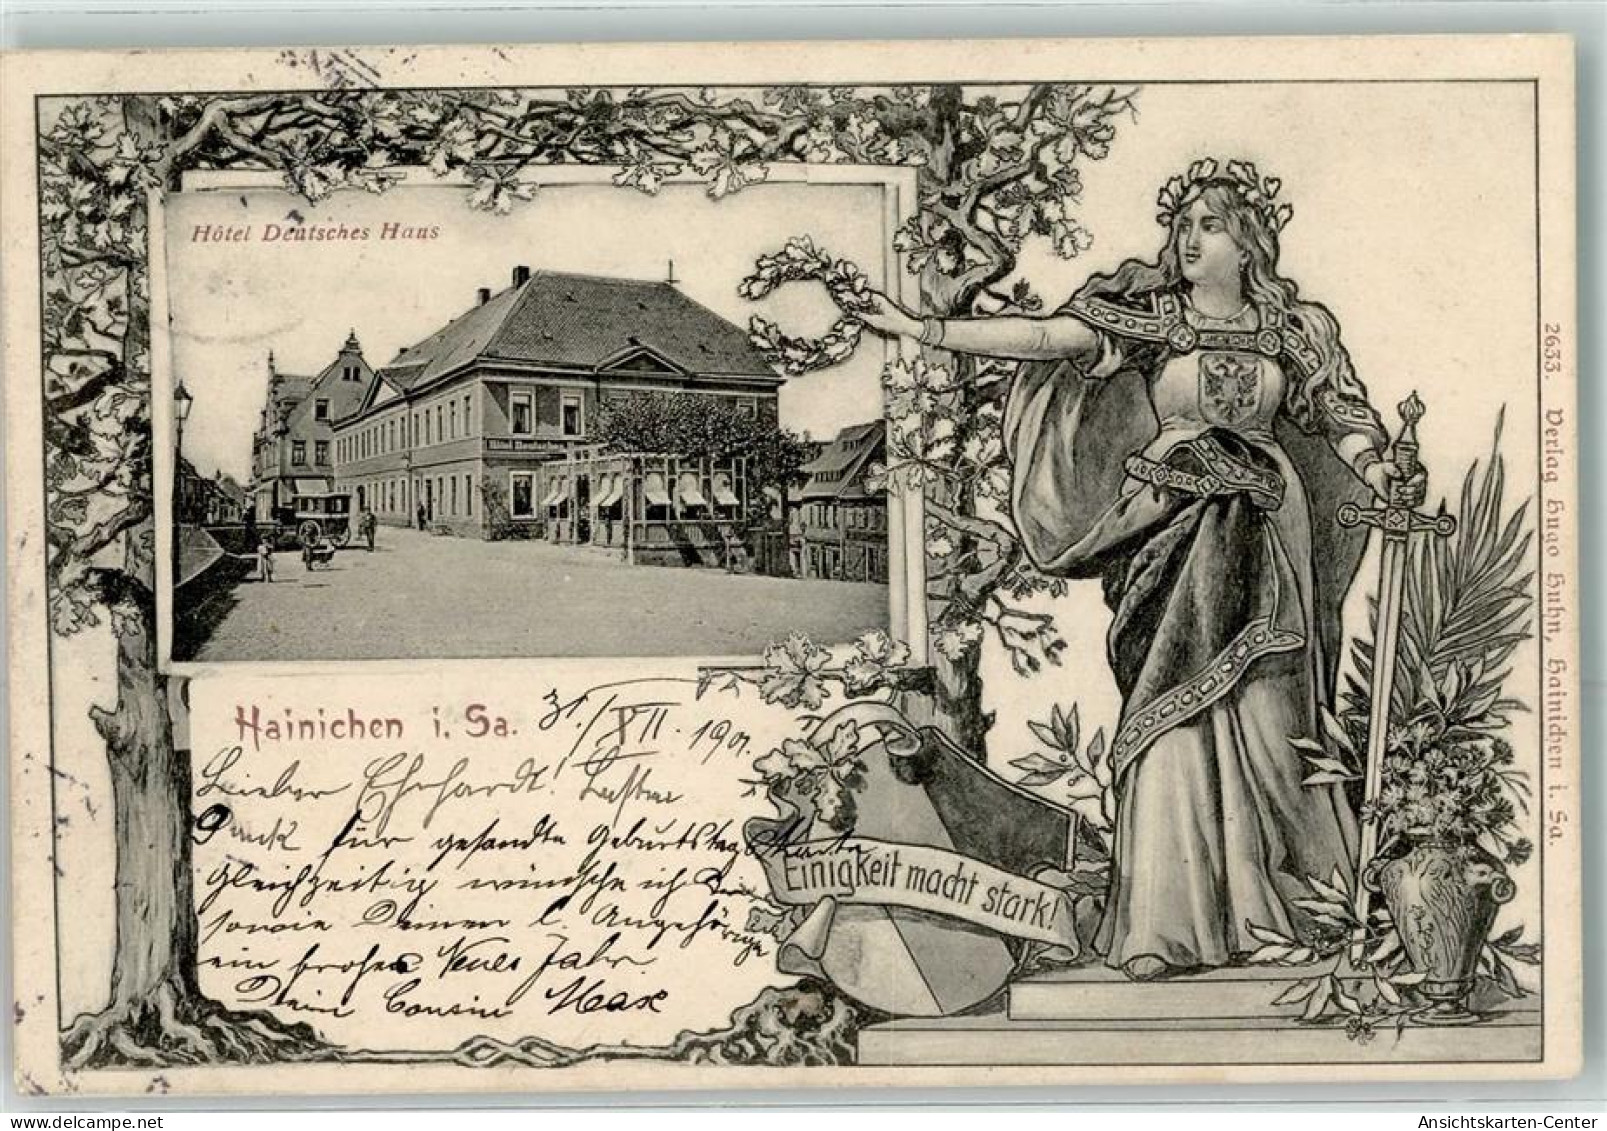 Hôtel Deutsches Haus
Hôtel Deutsches Haus
Hainichen i. Sa. 31./XII. 1901.
Lieber Ehrhardt!
Dank für gesandte Geburtstags Karte
Gleichzeitig wünsche ich Dir
sowie Deinen l. Angehörigen
ein frohes Neues Jahr.
Dein Cousin Max
Einigkeit macht stark!
2633. Verlag Hugo Huhn, Hainichen i. Sa.
Ansichtskarten-Center